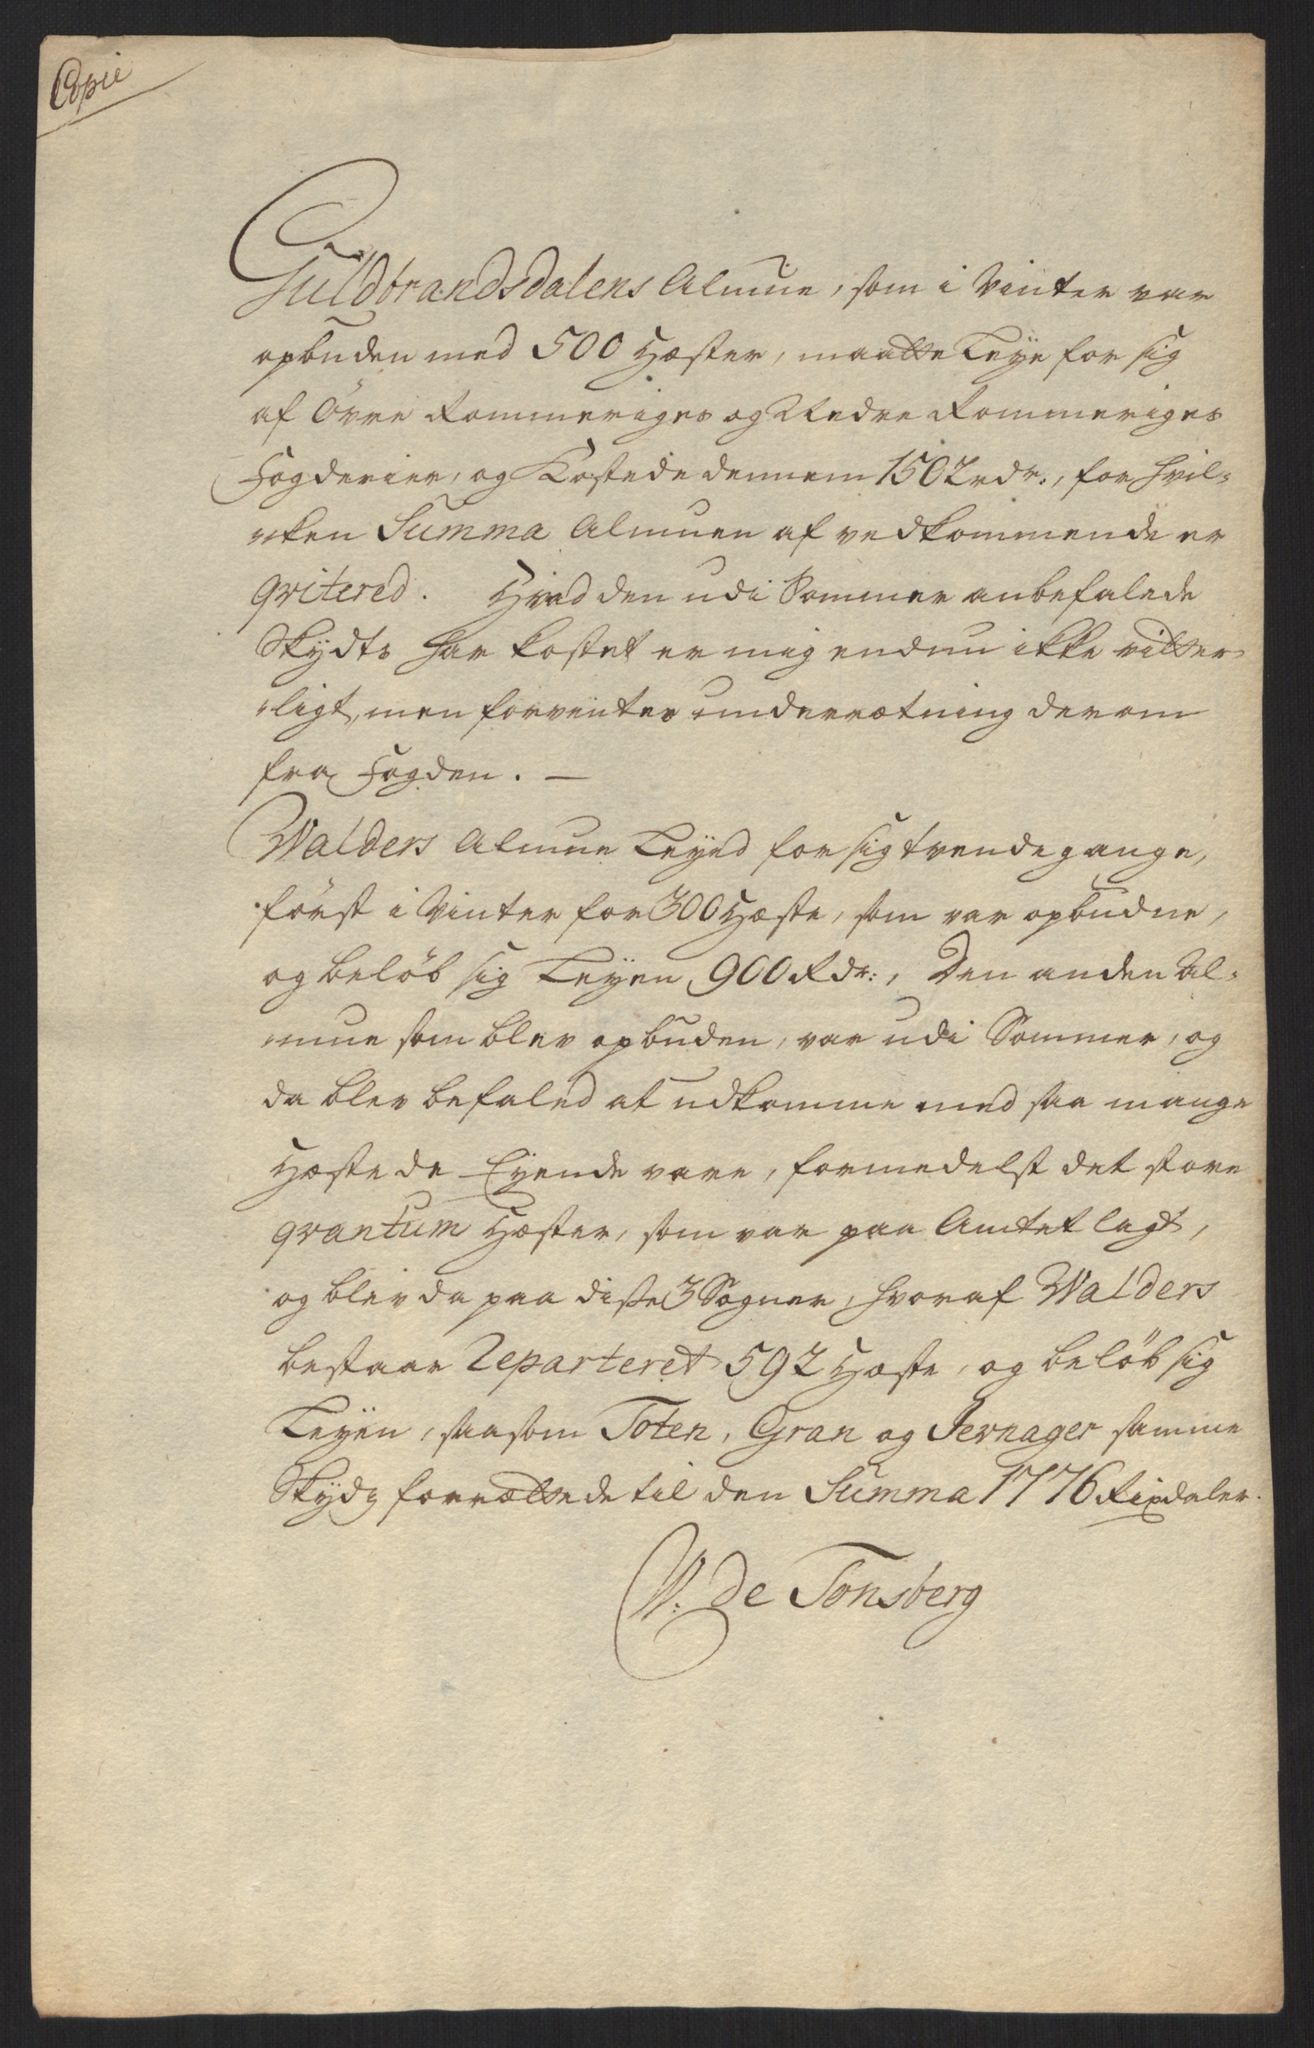 Copie
Guldbrandsdalens Almue, som i Vinter var
opbuden med 500 Hæster, maatte Leye for sig
af Övre Rommeriges og Nedre Rommeriges
Fogderier, og Kostede dennem 1502 rdr:, for hvil-
-ken Summa Almuen af vedkommende er
qvitered. Hvad den udi Sommer anbefalede
Skydts har kostet er mig endnu ikke vitter-
-ligt, men forventer underrætning derom
fra Fogden. —
Walders Almue Leyed for sig tvende gange,
först i Vinter for 300 Hæste, som var opbudne,
og belöb sig Leyen 900 Rdr:, Den anden Al-
-mue som blev opbuden, var udi Sommer, og
da blev befaled at udkomme med saa mange
Hæste de Eyende vare, formedelst det store
qvantum Hæster, som var paa Amtet lagt,
og blev da paa disse 3 Sogner, hvoraf Walders
bestaar Reparteret 592 Hæste, og belöb sig
Leyen, saasom Toten, Gran og Jevnager samme
Skydz forrættede til den Summa 1776 Rixdaler.
W. de Tonsberg